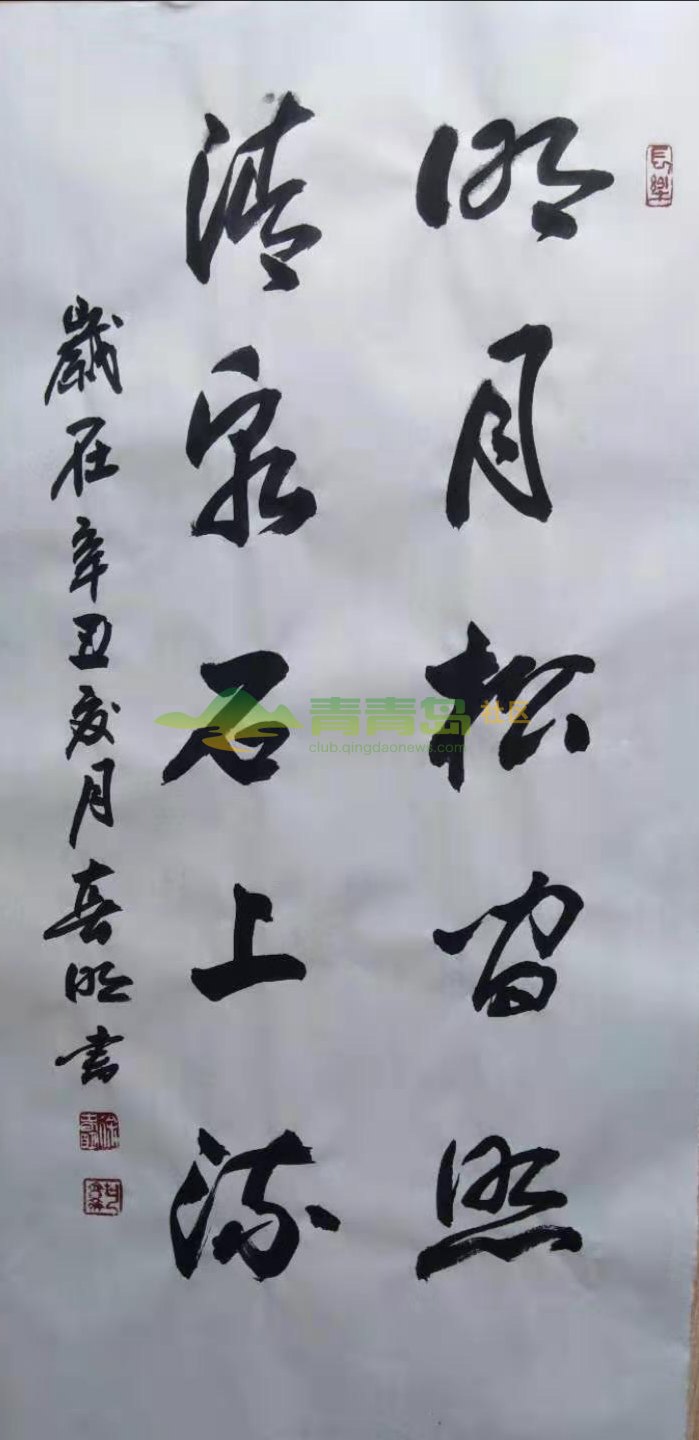 長樂
明月松間照
清泉石上流
歲在辛丑夏月明書
青青岛社区
club.qingdaonews.com